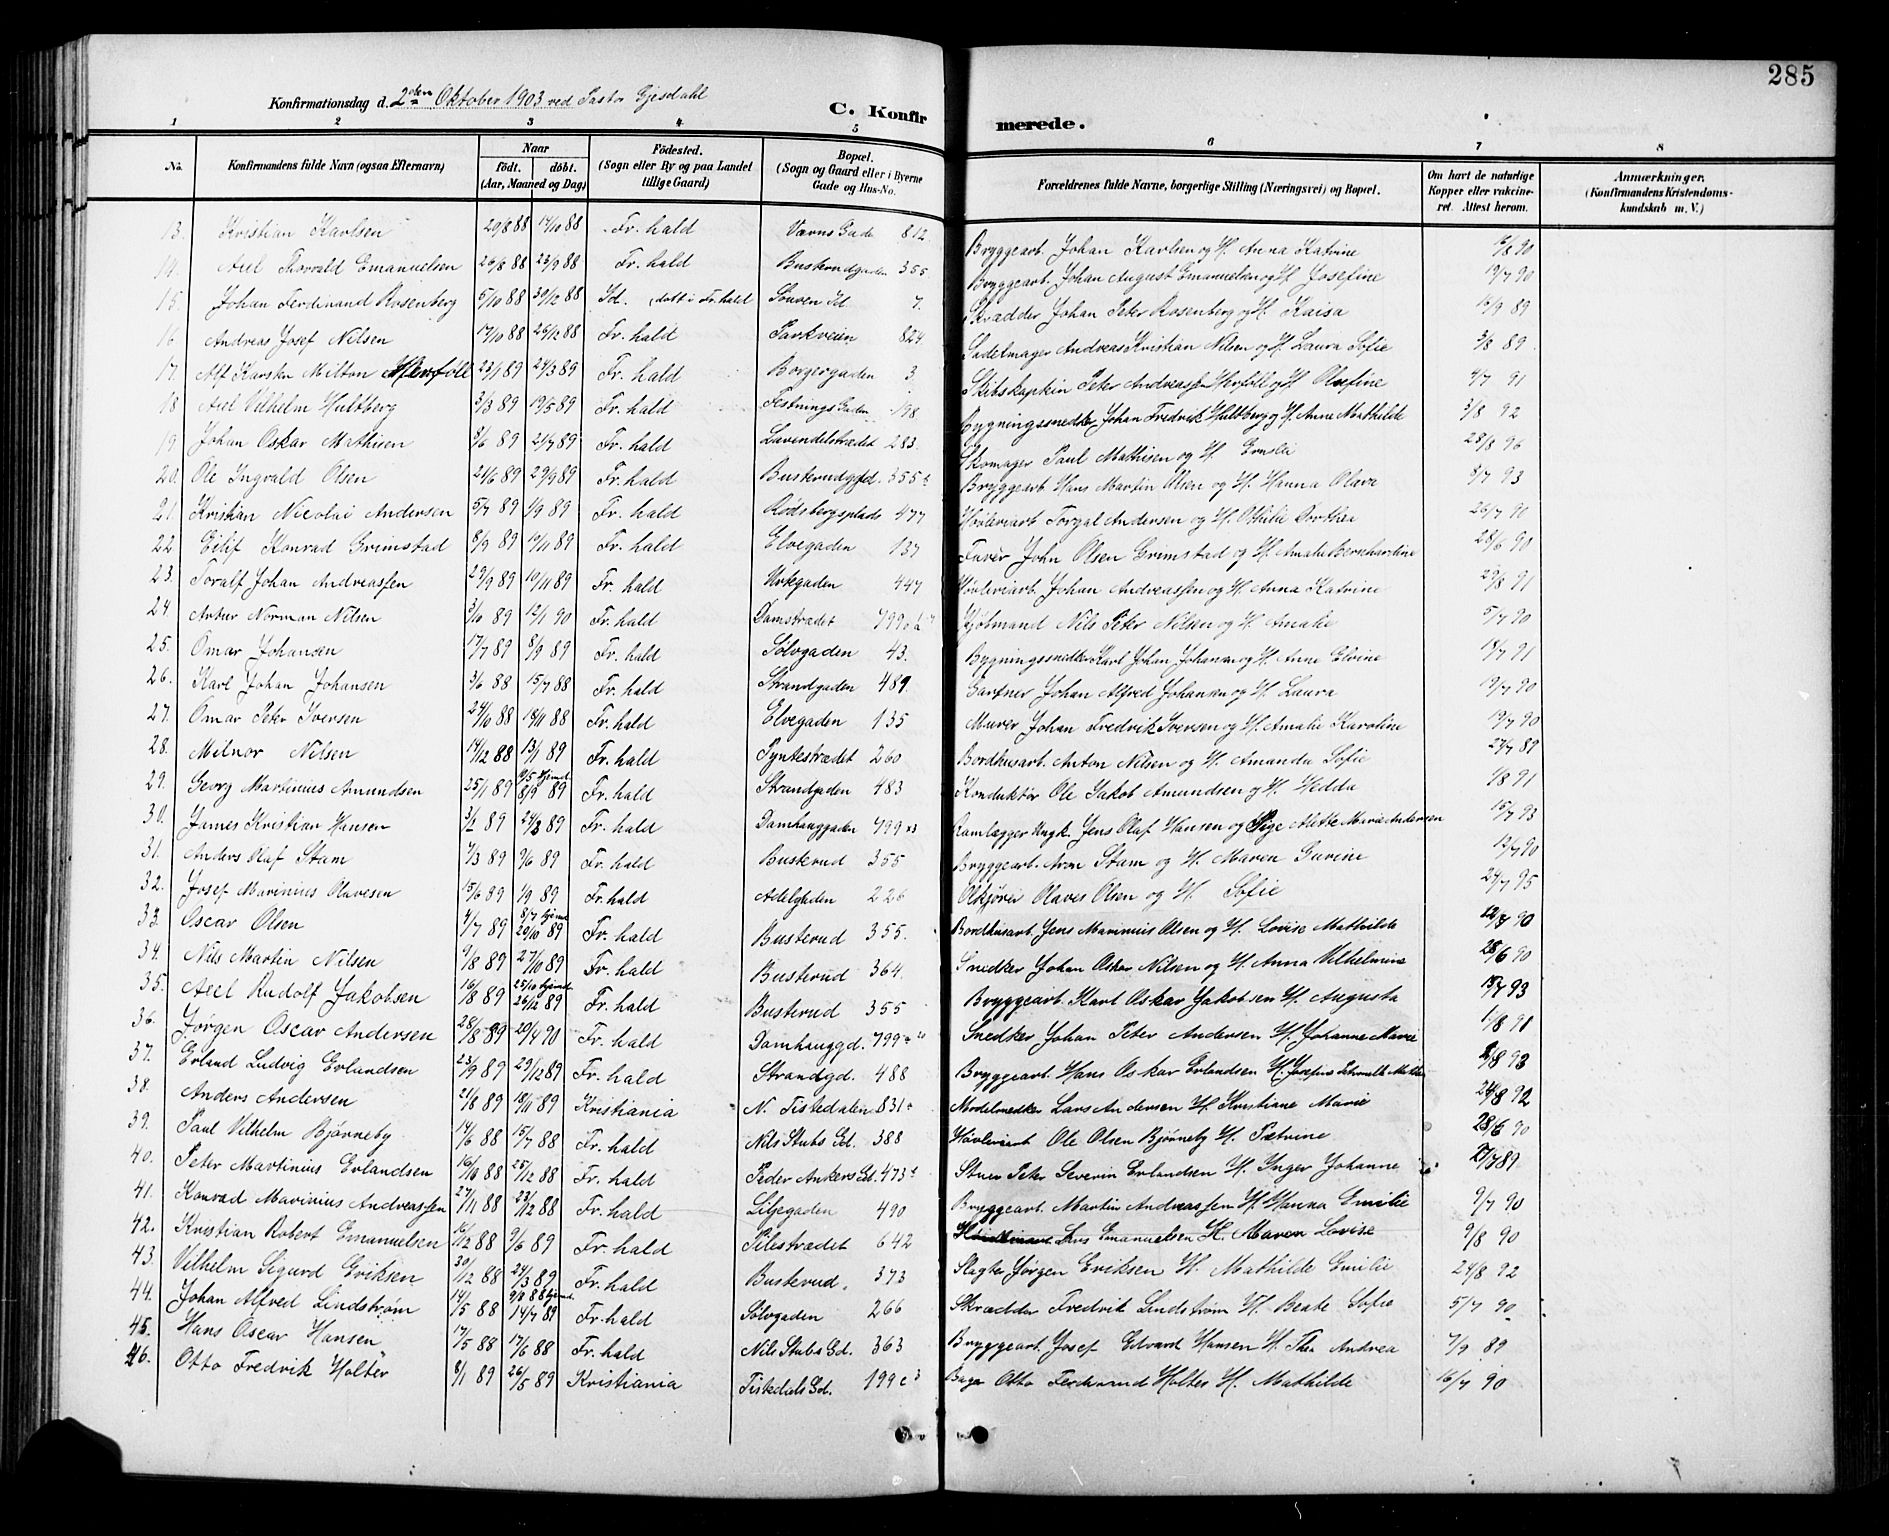 285
Konfirmationsdag d. 2den Oktober 1903 ved Pastor Gjesdahl
C. Konfirmerede.
1 2 3 4 5 6 7 8
No. Konfirmandens fulde Navn (ogsaa Efternavn) Naar födt. döbt. (Aar, Maaned og Dag) Födested. (Sogn eller By og paa Landet tillige Gaard) Bopæl. (Sogn og Gaard eller i Byerne Gade og Hus-No. Forældrenes fulde Navne, borgerlige Stilling (Næringsvei) og Bopæl. Om havt de naturlige Kopper eller vakcineret. Attest herom. Anmærkninger, (Konfirmandens Kristendomskundskab m. V.)
13. Kristian Karlsen 29/8 88 14/10 88 Fr. hald Værns Gade 812. Bryggearb. Johan Karlsen og H. Anna Katrine /8 90
14. Axel Thorvald Emanuelsen 26/8 88 23/9 88 Fr. hald Busterudgaden 355 Bryggearb. Johan August Emanuelsen og H. Josefine 19/7 90
15. Johan Ferdinand Rosenberg 5/10 88 30/12 88 Id. (døbt i Fr. hald Id. 7. Skrædder Johan Peter Rosenberg og H. Kaisa 16/9 89
16 Andreas Josef Nilsen 17/10 88 26/12 88 Fr. hald Parkveien 824. Sadelmager Andreas Kristian Nilsen og H. Laura Sofie 3/8 89
17. Alf Karsten Milton Herføll 23/1 89 24/3 89 Fr. hald Borgergaden 3. Skibskaptein Peter Andreassen Herføll og H. Olefine 4/7 91
18 Axel Vilhelm Hultberg 3/3 89 19/5 89 Fr. hald Festnings Gaden 198. Bygningssnedker Johan Fredrik Hultberg og H. Anne Mathilde 3/8 92
19. Johan Oskar Mathisen 8/6 89 21/7 89 Fr. hald Lavendelstrædet 283. Skomager Paul Mathisen og H. Emilie 28/8 96
20. Ole Ingvald Olsen 21/6 89 29/9 89 Fr. hald Busterudgd. 355 Bryggearb. Hans Martin Olsen og H. Hanna Olava 8/7 93
21. Kristian Nicolai Andersen 5/7 89 1/9 89 Fr. hald Rødsbergsplads 477 Høvleriarb. Torgal Andersen og H. Othilie Dorthea 26/7 90
22 Eilif Konrad Grimstad 8/9 89 19/11 89 Fr. hald Elvegaden 137 Farver John Olsen Grimstad og H. Amalie Bernhardine 28/6 90
23. Toralf Johan Andreassen 29/9 89 10/11 89 Fr. hald Urtegaden 447 Høvleriarb. Johan Andreassen og H. Anna Katrine 29/8 91
24 Artur Norman Nilsen 3/10 89 12/1 90 Fr. hald Damstrædet 799 Hjulmand Nils Peter Nilsen og H. Amalie 5/7 90
25. Omar Johansen 17/7 89 8/9 89 Fr. hald Sølvgaden 43. Bygningssnedker Karl Johan Johansen og H. Anne Elvine 18/7 91
26. Karl Johan Johansen 3/6 88 15/7 88 Fr. hald Strandgaden 489. Gartner Johan Alfred Johansen og H. Laura 19/7 90
27. Omar Peter Iversen 24/10 88 18/11 88 Fr. hald Elvegaden 135 Murer Johan Fredrik Iversen og H. Amalie Karoline 19/7 90
28. Milnor Nilsen 14/12 88 13/1 89 Fr. hald Pyntestrædet 260 Bordhusarb. Anton Nilsen og H. Amanda Sofie 27/7 89
29. Georg Martinius Amundsen 25/1 89 9/5 hjemd. 8/9 89 Fr. hald Strandgaden 483 Konduktør Ole Jakob Amundsen og H. Hedda 1/8 91
30. James Kristian Hansen 3/2 89 24/3 89 Fr. hald Damhauggaden 799 Ramlægger Ungk. Jens Olaf Hansen og Pige Alette Marie Andersen 15/7 93
31. Anders Olaf Stam 7/3 89 9/6 89 Fr. hald Busterud 355 Bryggearb. Aron Stam og H. Maren Gurine 12/7 90
32. Josef Marinius Olavesen 15/6 89 1/9 89 Fr. hald Adelgaden 226 Ølkjører Olaves Olsen og H. Sofie 24/7 95
33. Oscar Olsen 4/7 89 8/7 hjemd. 20/10 89 Fr. hald Busterud 355. Bordhusarb. Jens Marinius Olsen og H. Lovise Mathilde 12/7 90
34. Nils Martin Nilsen 9/8 89 27/10 89 Fr. hald Busterud 364. Snedker Johan Oskar Nilsen og H. Anna Vilhelmine 28/6 90
35. Axel Rudolf Jakobsen 16/8 89 25/10 hjemd. 26/12 89 Fr. hald Busterud 355 Bryggearb. Karl Oskar Jakobsen H. Augusta 15/7 93
36. Jørgen Oscar Andersen 28/8 89 20/4 90 Fr. hald Damhauggd. 799 Snedker Johan Peter Andersen H. Johanne Marie 1/8 91
37. Erland Ludvig Erlandsen 23/9 89 29/12 89 Fr. hald Strandgd. 488 Bryggearb. Hans Oskar Erlandsen H. Josefine /8 93
38. Anders Andersen 21/8 89 18/11 89 Kristiania N. Tistedalen 831 Modelsnedker Lars Andersen H. Kristiane Marie 24/8 92
39. Paul Vilhelm Bjørneby 14/6 88 15/7 88 Fr. hald Nils Stubs Gd. 388 Høvleriarb Ole Olsen Bjørneby H. Petrine 28/6 90
40. Peter Martinius Erlandsen 16/10 88 25/12 88 Fr. hald Peder Ankers Gd. 473 Stuer Peter Severin Erlandsen H. Inger Johanne 27/7 89
41. Konrad Marinius Andreassen 27/11 88 23/12 88 Fr. hald Liljegaden 490 Bryggearb. Martin Andreassen H. Hanna Emilie 9/7 90
42. Kristian Robert Emanuelsen 16/12 88 9/6 89 Fr. hald Pilestrædet 642 Lars Emanuelsen H. Maren Lovise 9/8 90
43. Vilhelm Sigurd Eriksen 30/12 88 24/3 89 Fr. hald Busterud. 373 Slagter Jørgen Eriksen H. Mathilde Emilie 24/8 92
44. Johan Alfred Lindstrøm 14/5 88 9/8 88 hjemd. 14/7 89 Fr. hald Sølvgaden 266 Skrædder Fredrik Lindstrøm H. Beate Sofie 5/7 90
45. Hans Oscar Hansen 17/5 88 17/6 88 Fr. hald Nils Stubs Gd. 363 Bryggearb. Josef Edvard Hansen H. Thea Andrea 7/9 89
46. Otto Fredrik Holter 8/1 89 26/5 89 Kristiania Tistedals Gd. 199 Bager Otto Ferdinand Holter H. Mathilde 16/7 90